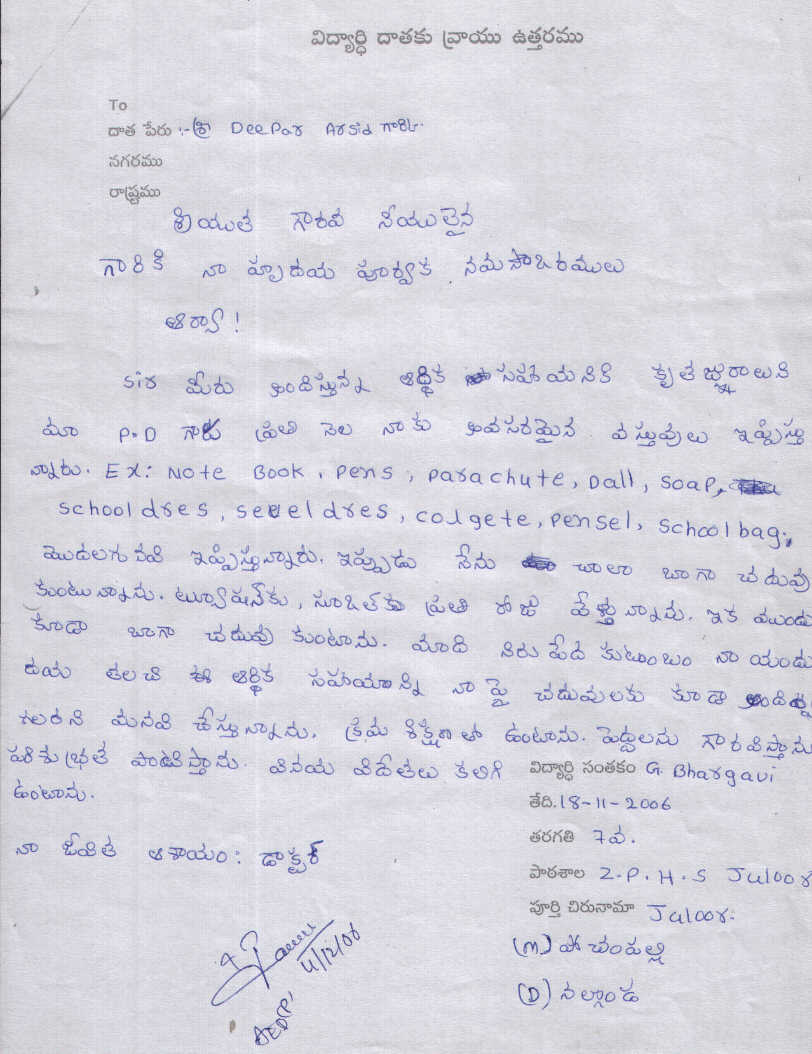 విద్యార్థి దాతకు వ్రాయు ఉత్తరము
To
దాత పేరు :- శ్రీ Deepar Arsid గారికి.
నగరము
రాష్ట్రము
శ్రీయుత గౌరవ నీయులైన
గారికి నా హృదయ పూర్వక నమస్కారములు
ఆర్యా!
sir మీరు అందిస్తున్న ఆర్థిక సహాయనికి కృతజ్ఞురాలుని
మా P.D గారు ప్రతి నెల నాకు అవసరమైన వస్తువులు ఇప్పిస్తు
న్నారు. Ex: Note Book, pens, parachute, Dall, soap,
school dres, seveel dres, colgete, pensel, school bag,
మొదలగునవి ఇప్పిస్తున్నారు. ఇప్పుడు నేను చాలా బాగా చదువు
కుంటున్నాను. ట్యూషన్‌కు, స్కూల్‌కు ప్రతి రోజు వెళ్తున్నాను. ఇక ముందు
కూడా బాగా చదువు కుంటాను. మాది నిరుపేద కుటుంబం నా యందు
దయ తలచి ఈ ఆర్థిక సహాయాన్ని నా పై చదువులకు కూడా
గలరని మనవి చేస్తున్నాను. క్రమ శిక్షణ తో ఉంటాను. పెద్దలను గౌరవిస్తాను
పరిశుభ్రత పాటిస్తాను. వినయ విదేతలు కలిగి
ఉంటాను.
విద్యార్థి సంతకం G. Bhargavi
తేది. 18-11-2006
తరగతి 7వ.
నా జీవిత ఆశాయం: డాక్టర్
పాఠశాల Z.P.H.S Juloor
పూర్తి చిరునామా Juloor.
(m) పోచంపల్లి
(D) నల్గొండ
4/12/06